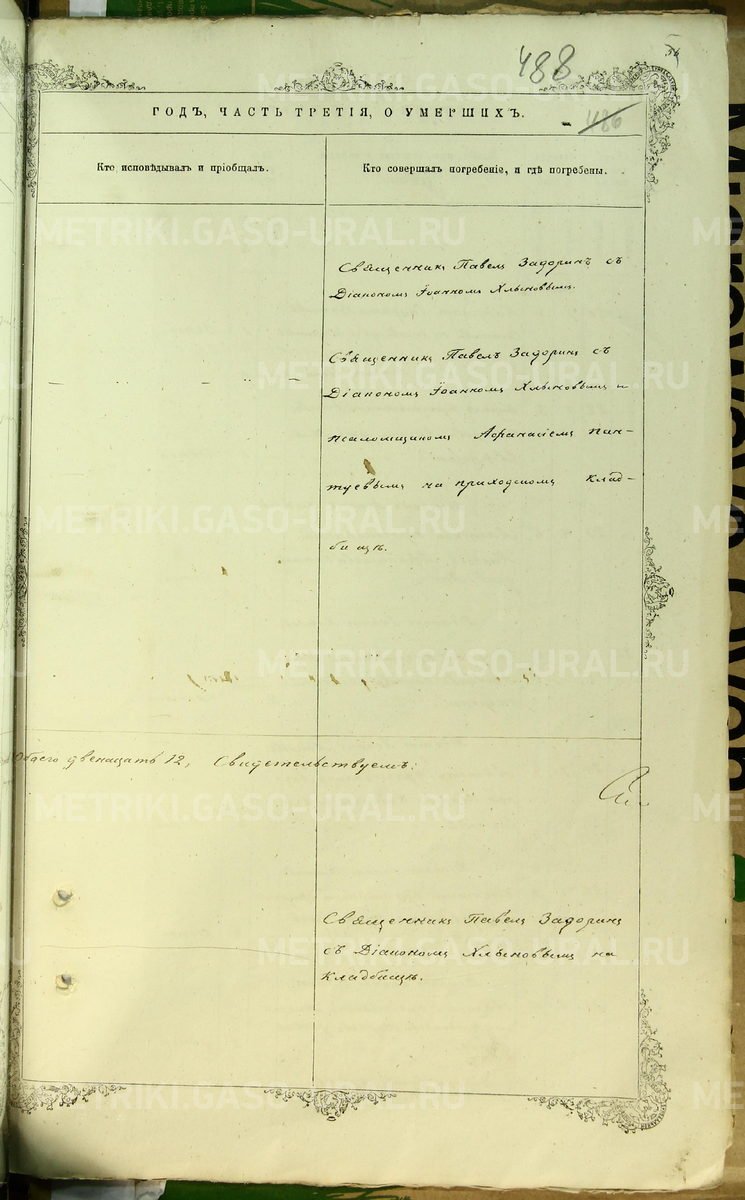 488
486
ГОДЪ, ЧАСТЬ ТРЕТІЯ, О УМЕРШИХЪ.
Кто исповѣдывалъ и пріобщалъ.
Кто совершалъ погребеніе, и гдѣ погребены.
Священникъ Павелъ Задоринъ съ
Діакономъ Іоанномъ Хлыновымъ.
Священникъ Павелъ Задоринъ съ
Діакономъ Іоанномъ Хлыновымъ и
псаломщикомъ Афанасіемъ Пан-
туевымъ на приходскомъ клад-
бищѣ.
Общего двенацать 12, Свидетельствуемъ:
Священникъ Павелъ Задоринъ
съ Діакономъ Хлыновымъ на
кладбищѣ.
METRIKI.GASO-URAL.RU